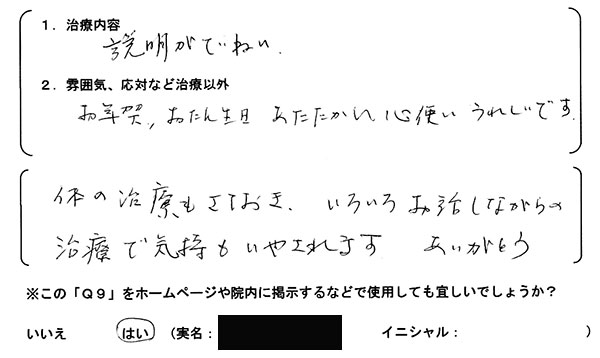 1．治療内容
説明がていねい.
2．雰囲気、応対など治療以外
お年賀, おたん生日 あたたかい心使い うれしいです.
体の治療もさておき、いろいろお話しながらの
治療で気持もいやされます ありがとう
※この「Q9」をホームページや院内に掲示するなどで使用しても宜しいでしょうか？
いいえ はい （実名： イニシャル： ）